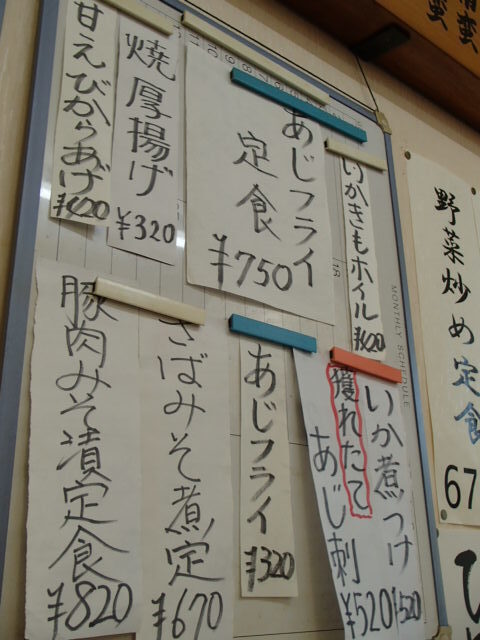 甘えびからあげ
¥620
焼厚揚げ
¥320
あじフライ
定食
¥750
いかきもホイル
¥620
MONTHLY SCHEDULE
豚肉みそ漬定食
¥820
さばみそ煮定
¥670
あじフライ
¥320
いか煮つけ
¥520
獲れたて
あじ刺
¥520
野菜炒め定食
67